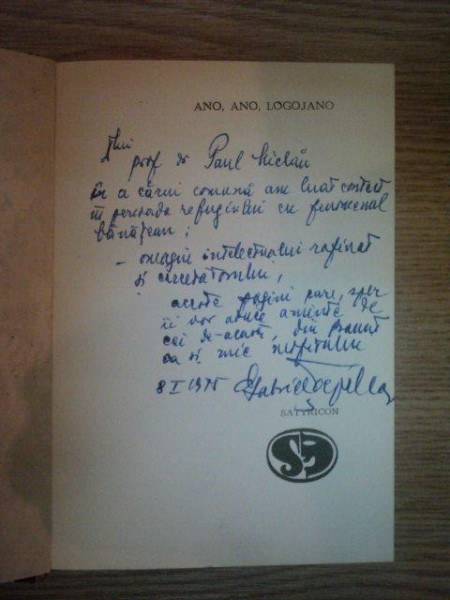 ANO, ANO, LOGOJANO
prof dr Paul Miclău
în a cărui comună am luat contact
în perioada refugiului cu fenomenul
bănățean;
– omagiu intelectualului rafinat
și cercetătorului,
aceste pagini care, sper
îi vor aduce aminte de
cei de-acasă, din Banat
ca și mie
8 I 1975
SATYRICON